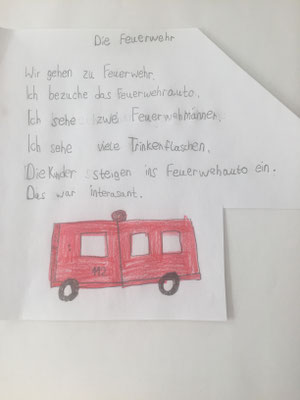 Die Feuerwehr
Wir gehen zu Feuerwehr.
Ich bezuche das Feuerwehrauto.
Ich sehe zwei Feuerwehmänner.
Ich sehe viele Trinkenflaschen.
Die Kinder steigen ins Feuerwehauto ein.
Das war interasant.